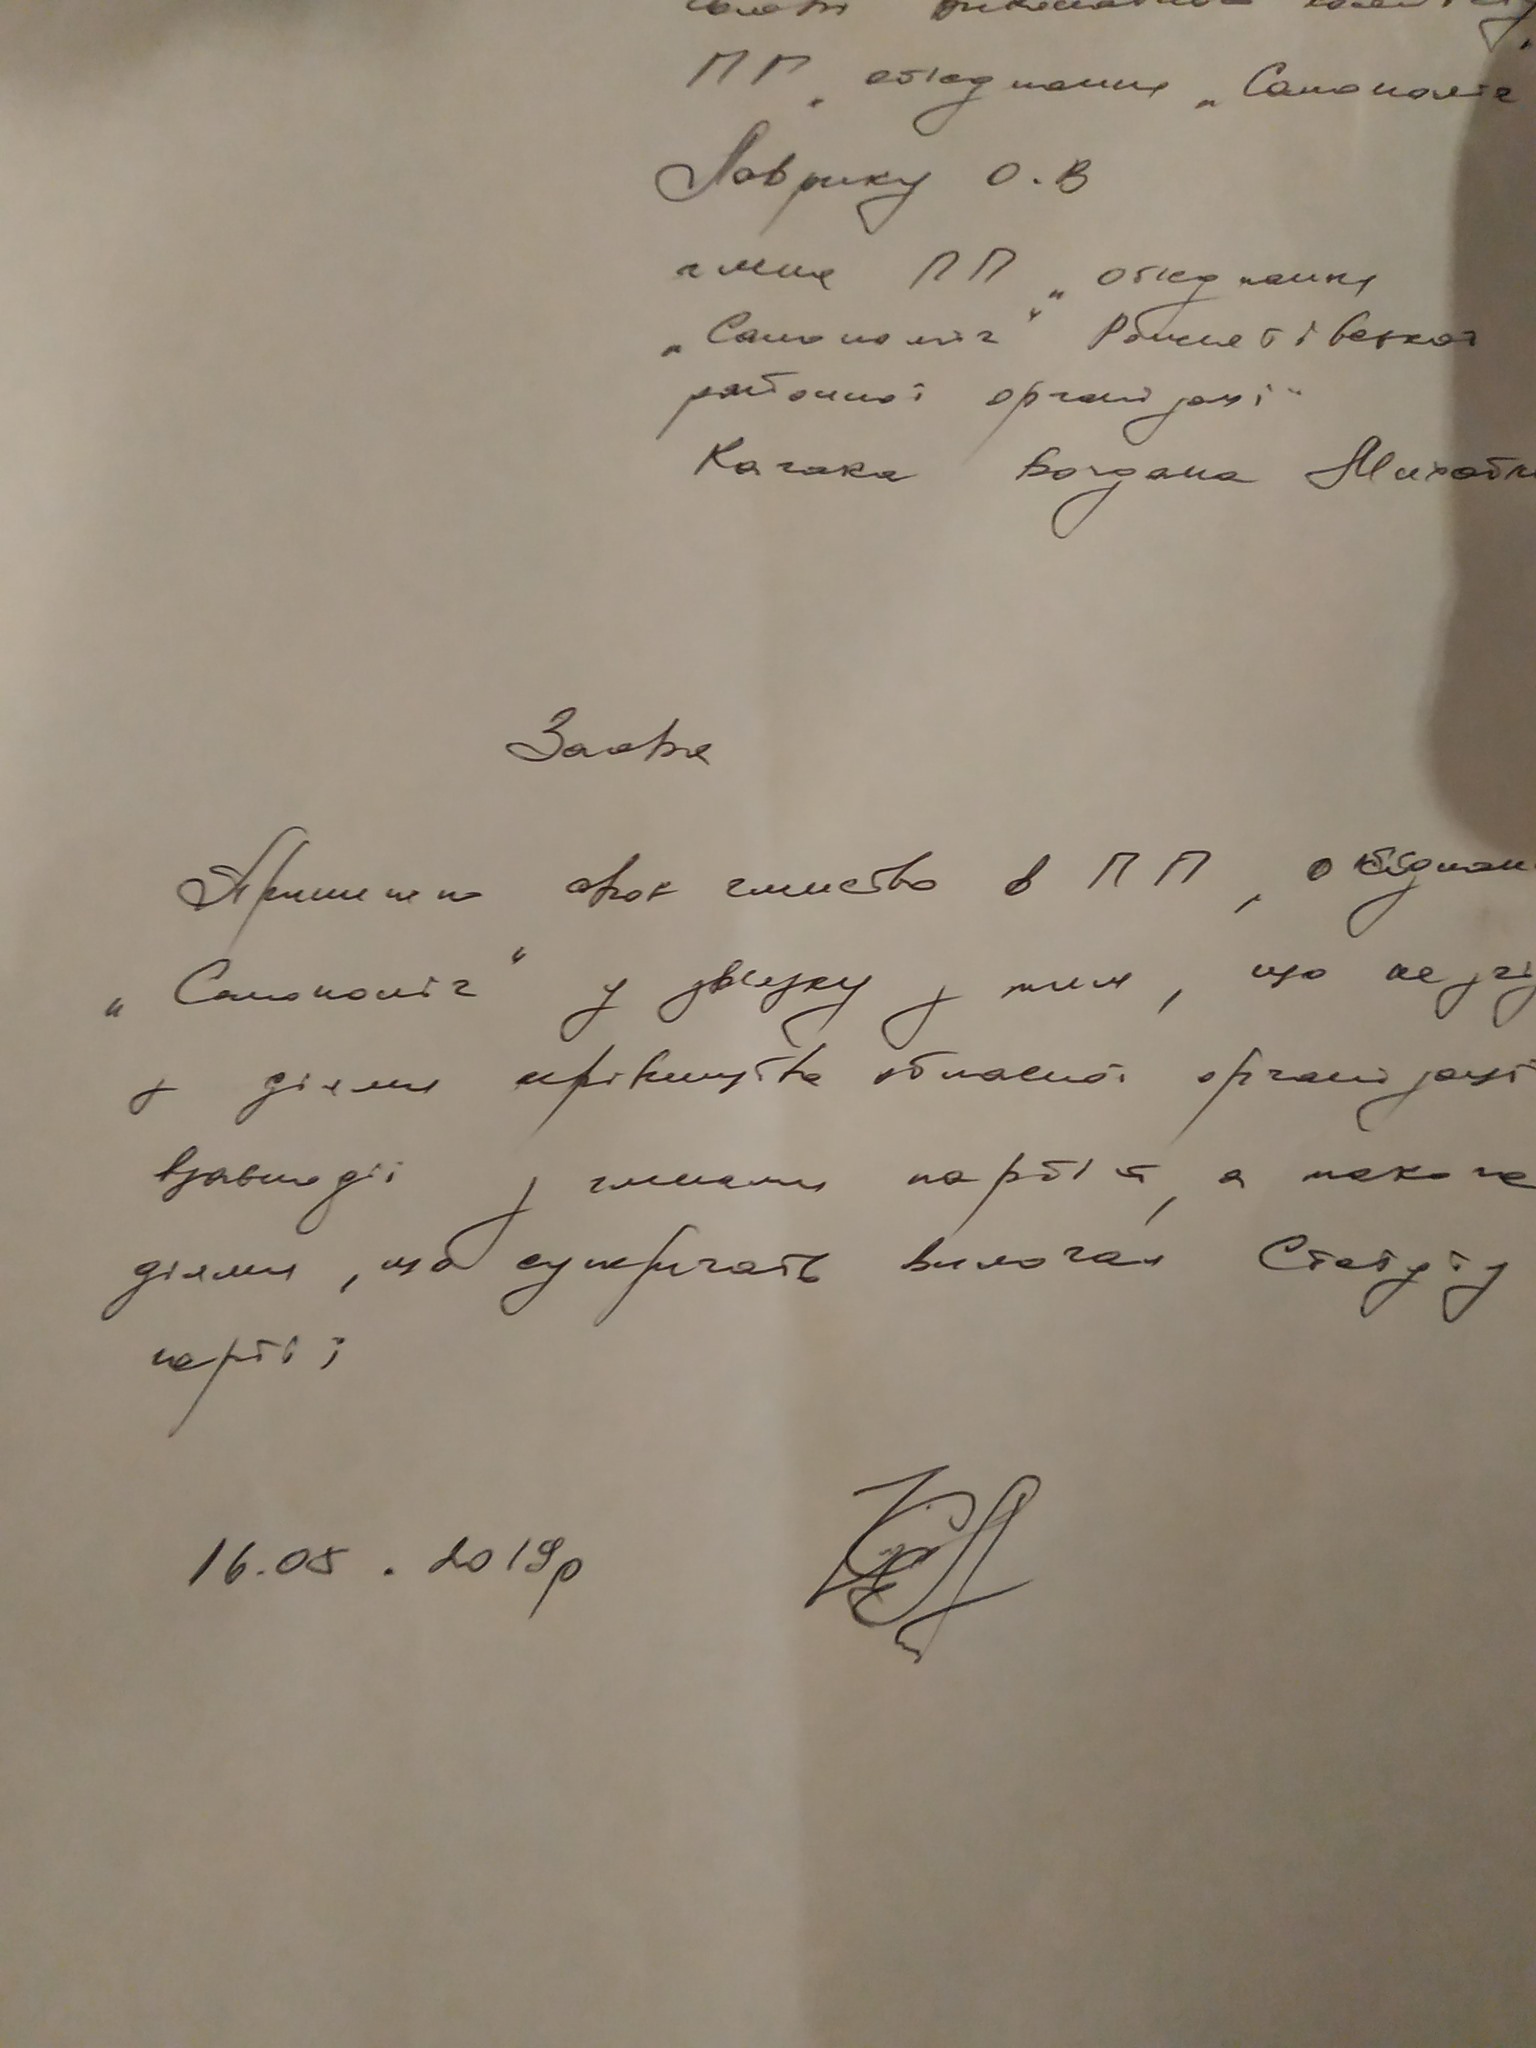 Голові виконавчого комітету
ПП „Обієднання „Самопоміч
Лаврику О.В
члена ПП „Обієднання
„Самопоміч" Решетівської
районної організації"
Качака Богдана Михайл
Заява
Припиняю своє членство в ПП „Обієднан
„Самопоміч" у звязку з тим, що не згі
з діями керівництва обласної організації
взаємодії з членами партії, а також
діями, що суперечать вимогам Статуту
партії
16.08.2019р